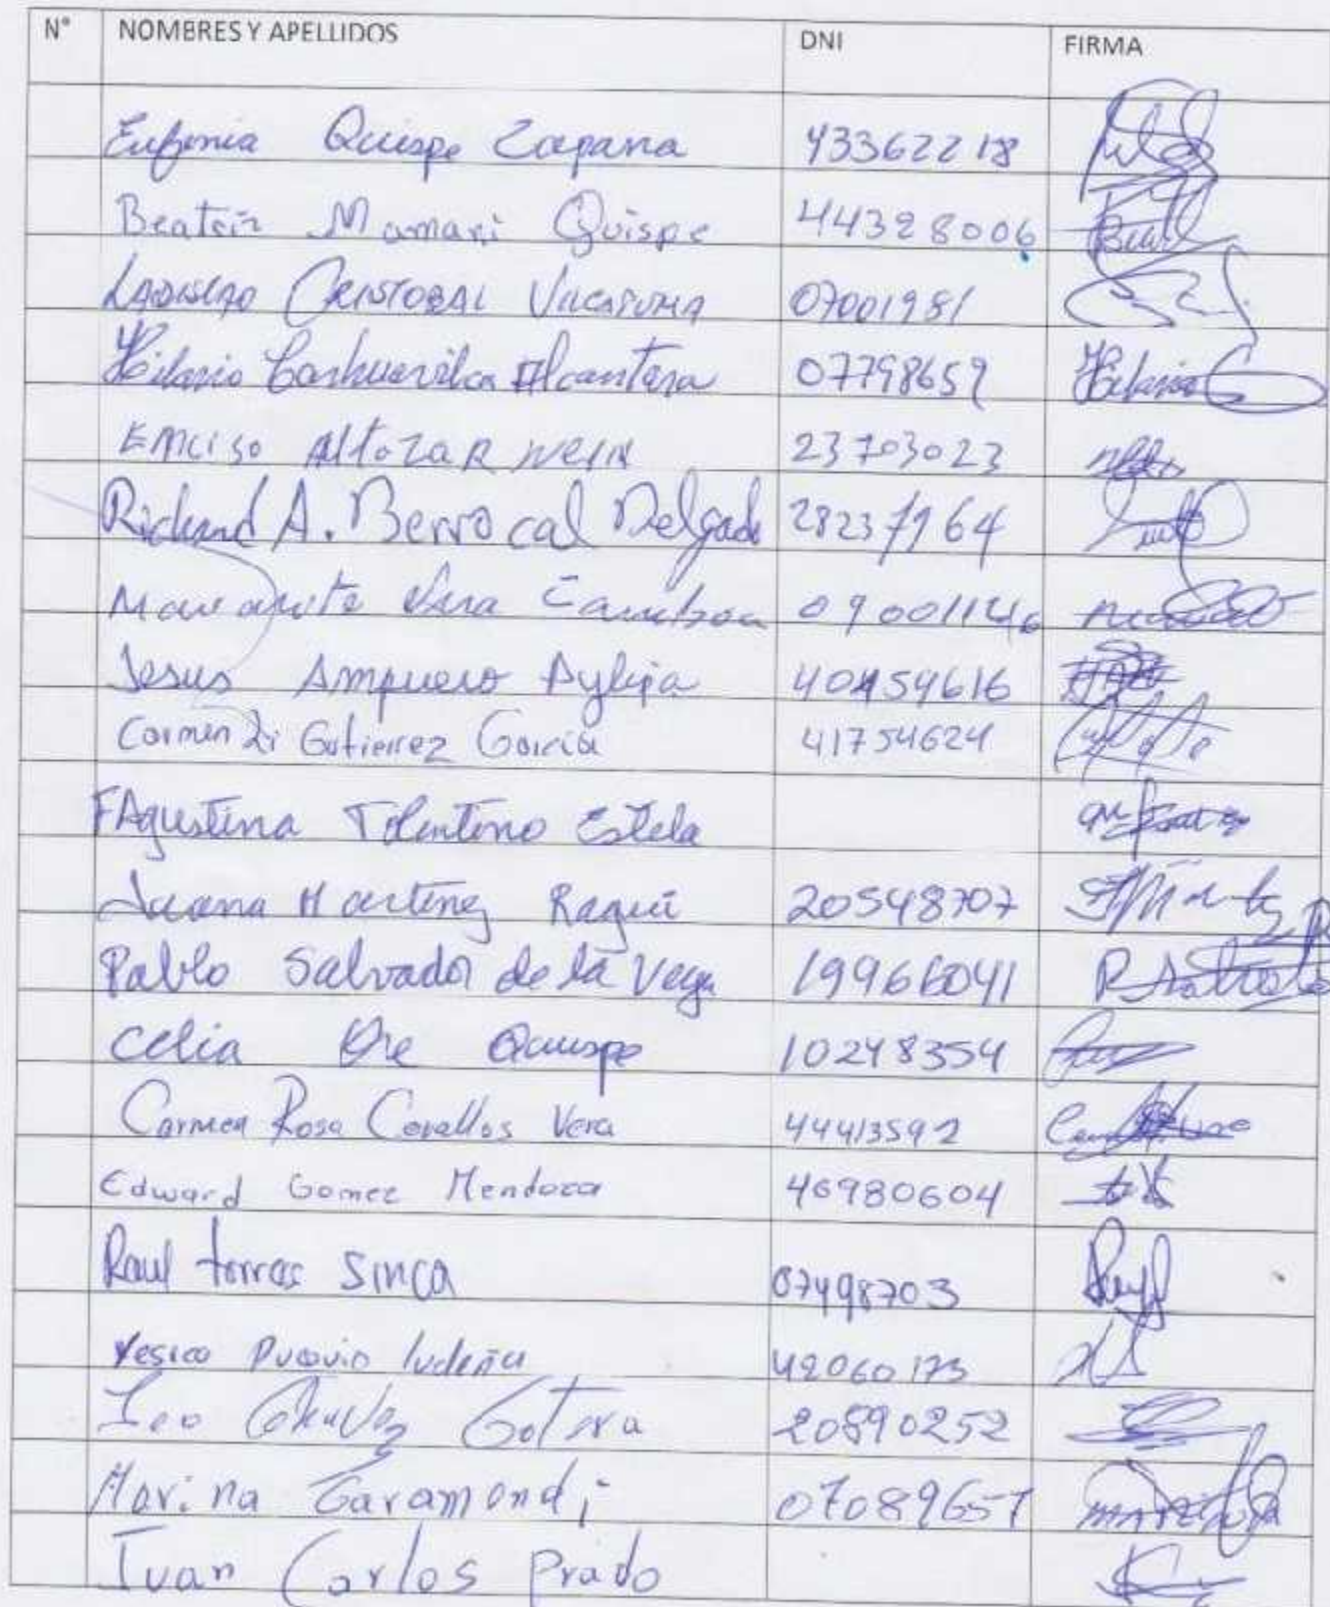 N° NOMBRES Y APELLIDOS DNI FIRMA
Eufemia Quispe Zapana 43362218
Beatriz Mamani Quispe 44328006
LADISLAO CRISTOBAL VILCATUMA 07001981
Hilario Carhuavilca Alcantara 07798659 Hilario
ENCISO AltozaR 23703023
Richard A. Berrocal Delgado 28237964
Vera Gamboa 09001146
Jesus Ampuero 40454616
Carmen Gutierrez Garcia 41754624
Agustina Tolentino Estela
Juana Martinez 20548707
Pablo Salvador de la Vega 19966041
Celia Ore Quispe 10248354
Carmen Rosa Cevallos Vera 44413592
Edward Gomez Mendoza 46980604
Raul torres SINCA 07498703
Yesica Puquio ludeña 42060173
Chavez Gotera 20890252
Marina Garamendi 07089657
Juan Carlos Prado